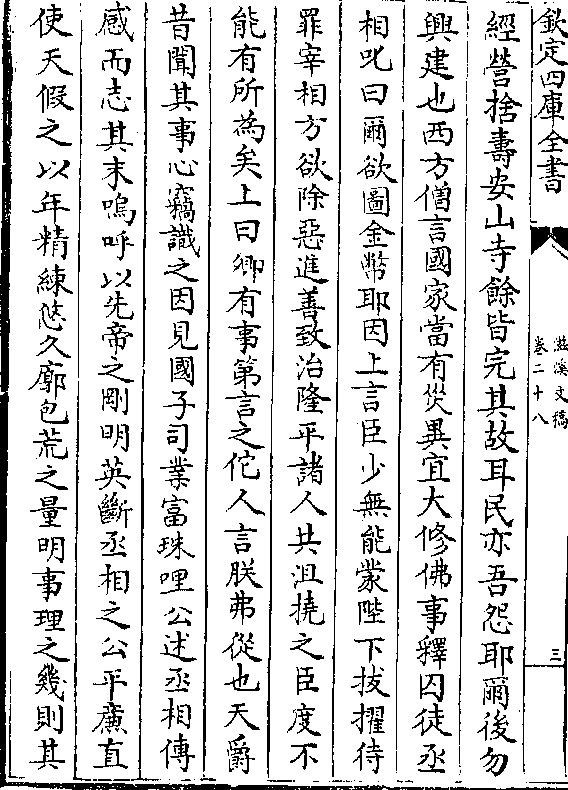 欽定四庫全書
滋溪文稿
卷二十八
三
經營捨壽安山寺餘皆完其故耳民亦吾怨耶爾後勿
興建也西方僧言國家當有災異宜大修佛事釋囚徒丞
相叱曰爾欲圖金幣耶因上言臣少無能蒙陛下拔擢待
罪宰相方欲除惡進善致治隆平諸人共沮撓之臣度不
能有所為矣上曰卿有事第言之佗人言朕弗從也天爵
昔聞其事心竊識之因見國子司業富珠哩公述丞相傳
感而志其末嗚呼以先帝之剛明英斷丞相之公平廉直
使天假之以年精練悠久廓包荒之量明事理之幾則其